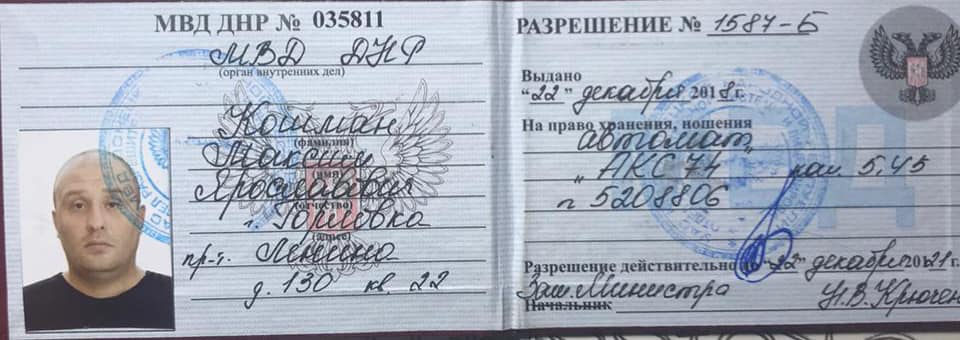 МВД ДНР № 035811
МВД ДНР
(орган внутренних дел)
Кошман
(фамилия)
Максим
(имя)
Ярославович
(отчество)
г. Горловка
(адрес)
пр-т. Ленина
д. 130 кв. 22
РАЗРЕШЕНИЕ № 1587-Б
Выдано
"22" декабря 2018г.
На право хранения, ношения
автомат
"АКС74 кал. 5,45
5208806
Разрешение действительно до "22" декабря 2021г.
Зам. Министра
Начальник